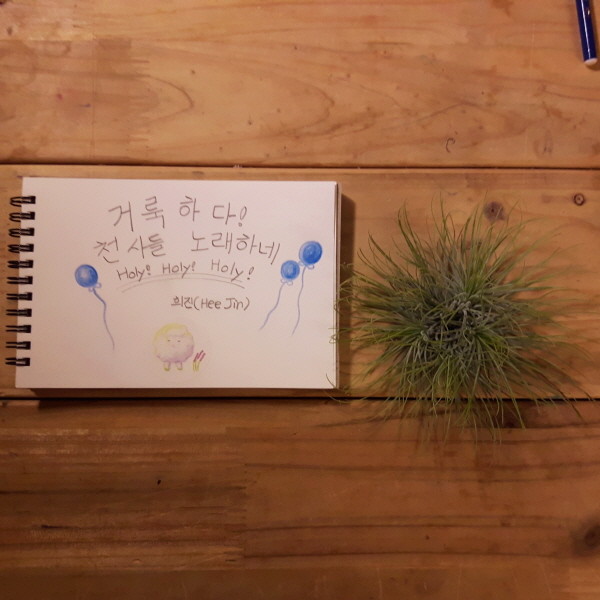 거룩하다!
천사들 노래하네
Holy! Holy! Holy!
희진(Hee Jin)